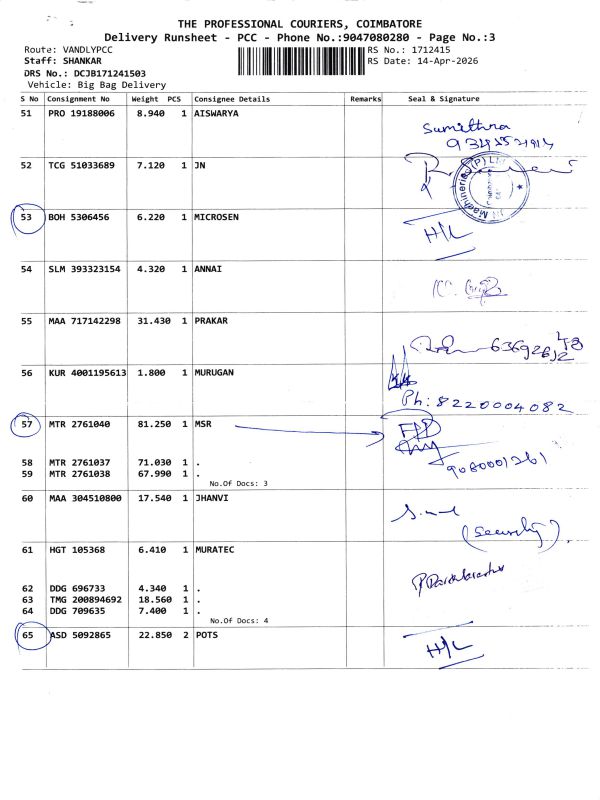 THE PROFESSIONAL COURIERS, COIMBATORE
Delivery Runsheet - PCC - Phone No.:9047080280 - Page No.:3
Route: VANDLYPCC
RS No.: 1712415
Staff: SHANKAR
RS Date: 14-Apr-2026
DRS No.: DCJB171241503
Vehicle: Big Bag Delivery
S No Consignment No Weight PCS Consignee Details Remarks Seal & Signature
51 PRO 19188006 8.940 1 AISWARYA
Sumithra
52 TCG 51033689 7.120 1 JN
53 BOH 5306456 6.220 1 MICROSEN
H/L
54 SLM 393323154 4.320 1 ANNAI
55 MAA 717142298 31.430 1 PRAKAR
56 KUR 4001195613 1.800 1 MURUGAN
Ph: 8220004082
57 MTR 2761040 81.250 1 MSR
58 MTR 2761037 71.030 1 .
9080001261
59 MTR 2761038 67.990 1 .
No.Of Docs: 3
60 MAA 304510800 17.540 1 JHANVI
(Security)
61 HGT 105368 6.410 1 MURATEC
62 DDG 696733 4.340 1 .
63 TMG 200894692 18.560 1 .
64 DDG 709635 7.400 1 .
No.Of Docs: 4
65 ASD 5092865 22.850 2 POTS
H/L